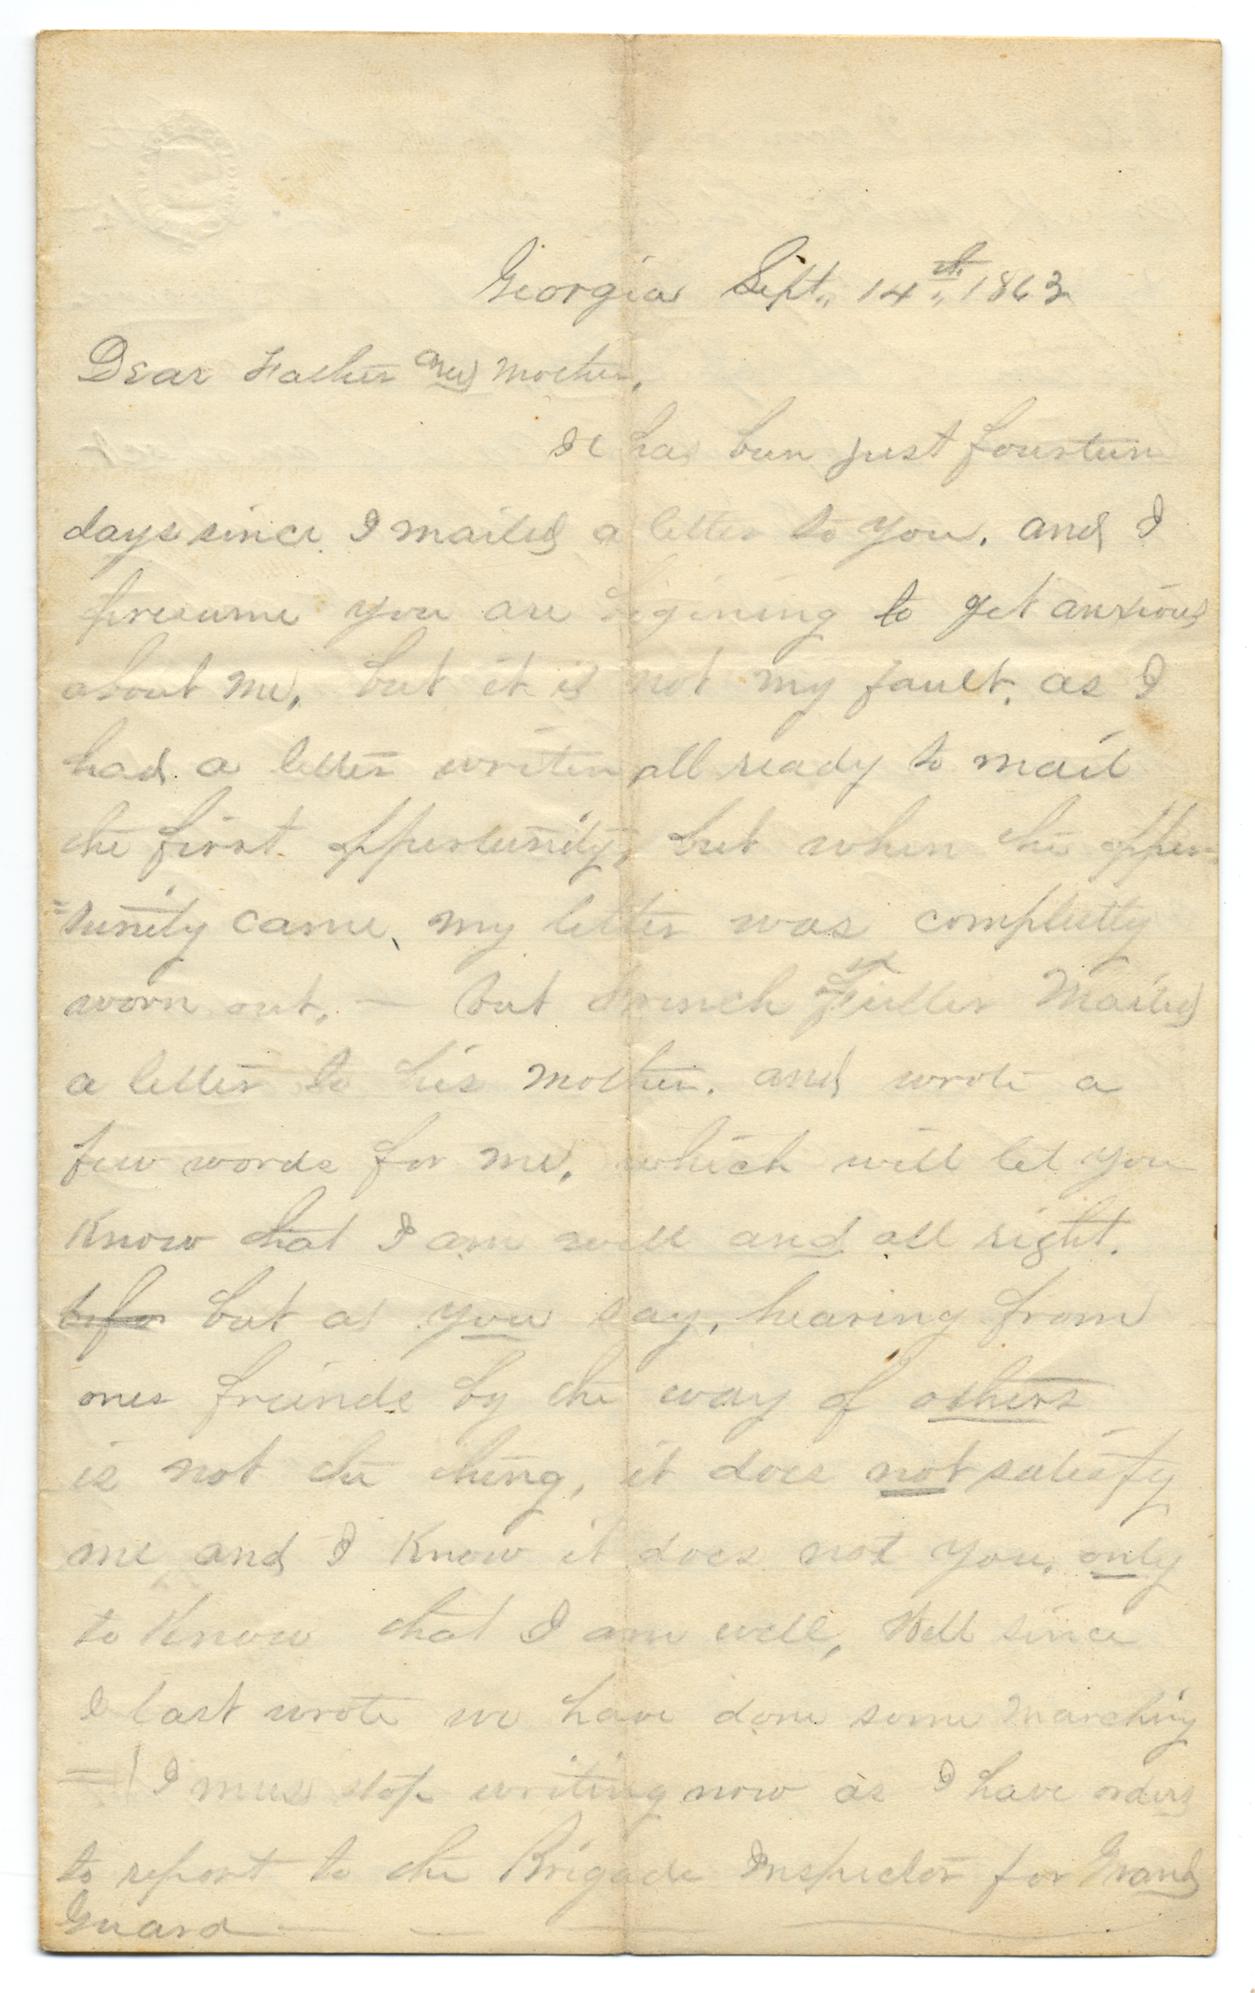 Georgia Sept., 14th., 1863
Dear Father and Mother,
It has been just fourteen
days since I mailed a letter to you. and I
presume you are begining to get anxious
about me, but it is not my fault. as I
had a letter writen all ready to mail
the first oppertunity, but when the opper
=tunity came, my letter was completty
worn out, — but French Fuller Mailed
a letter to his mother. and wrote a
few words for me, which will let you
Know that I am well and all right.
befor but as you say, hearing from
ones freinds by the way of others
is not the thing, it does not satisfy
me and I Know it does not you, only
to Know that I am well, Well since
I last wrote we have done some marching
= I must stop writing now as I have orders
to report to the Brigade Inspector for Grand
Guard —